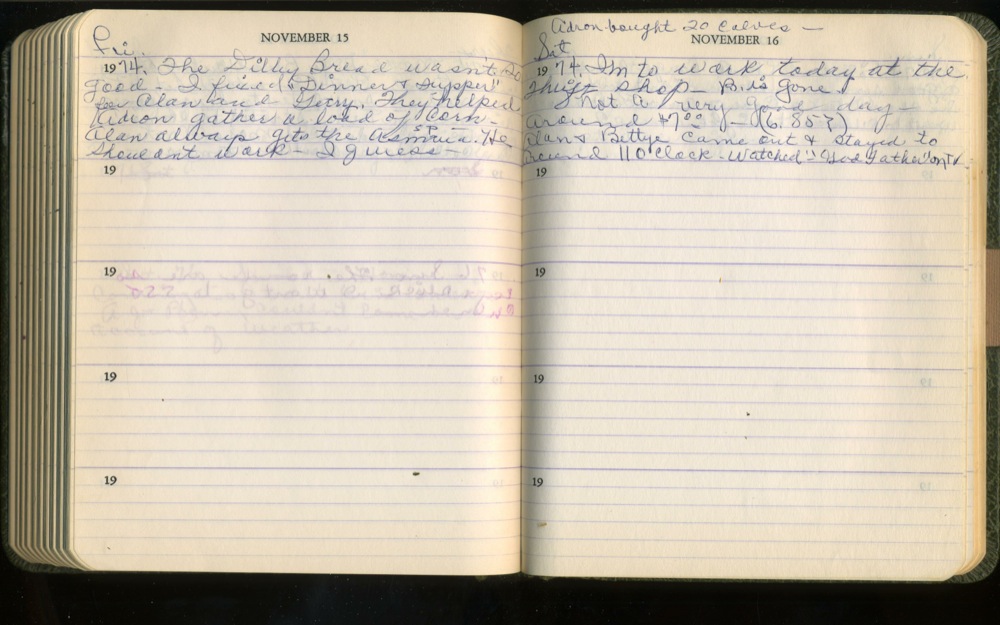 NOVEMBER 15
Fri.
1974. The Dilly Bread wasn't so
good - I fixed "Dinner & Supper"
for Alan and Gerry. They helped
Adron gather a load of Corn -
Alan always gets the Asmria. SP - He
Shouldnt work - I guess -
19
19
19
19
Adron bought 20 Calves -
NOVEMBER 16
Sat.
1974. Im to work today at the
Thrift shop - B. is gone.
Not a very good day -
Around $7.00 - (6.85?)
Alan & Bettye came out & stayed to
around 11 O'Clock - Watched "God Father" on TV
19
19
19
19